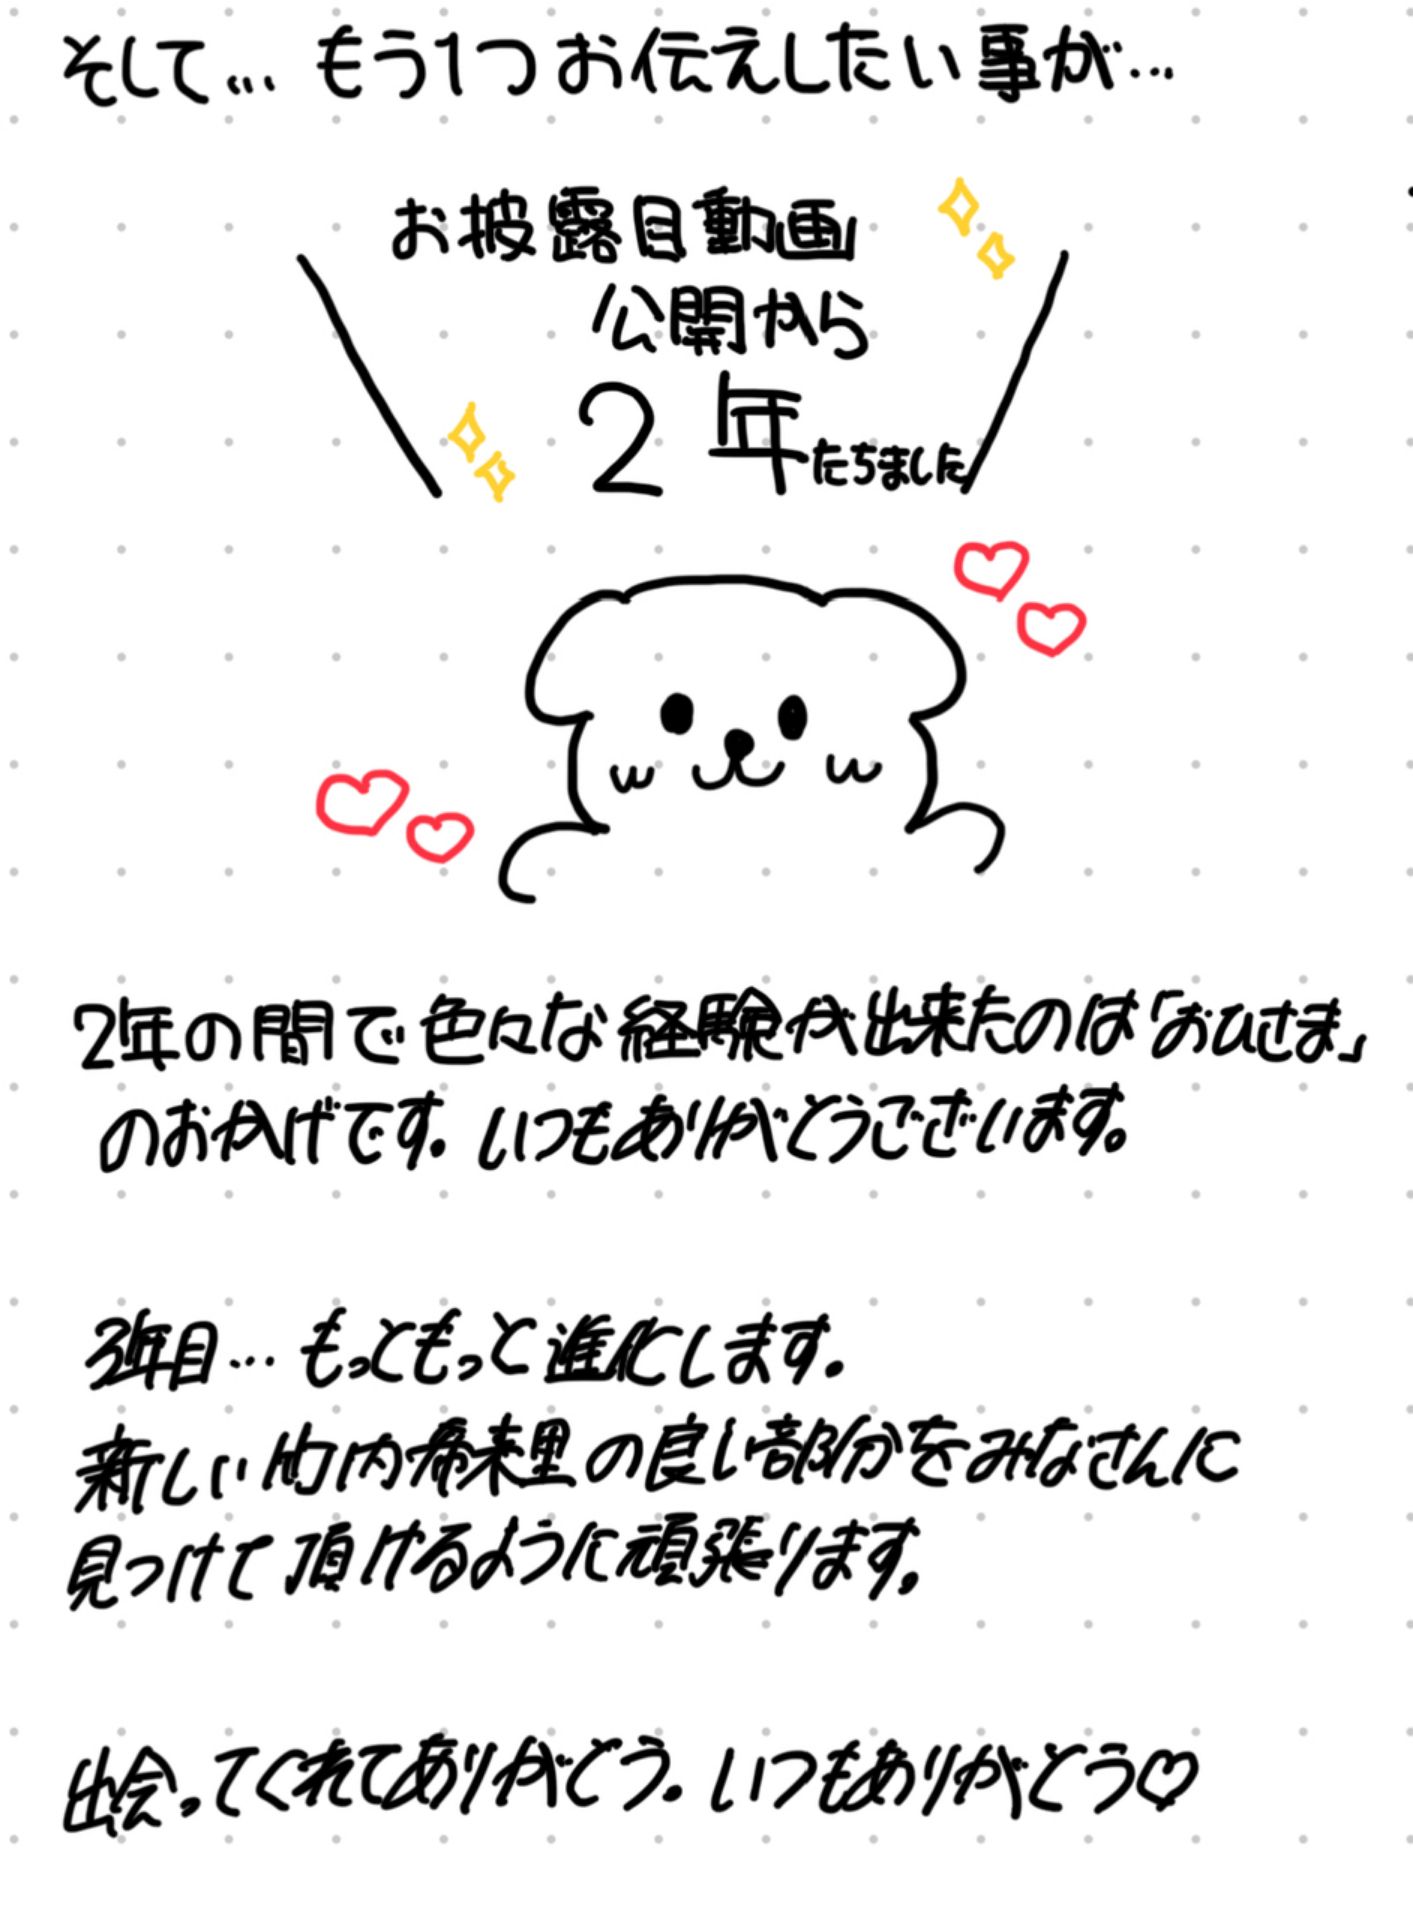 そして... もう1つお伝えしたい事が...
お披露目動画
公開から
2年たちました
2年の間で色々な経験が出来たのは「おひさま」
のおかげです. いつもありがとうございます。
3年目... もっともっと進化します.
新しい竹内希来里の良い部分をみなさんに
見つけて頂けるように頑張ります.
出会ってくれてありがとう. いつもありがとう♡